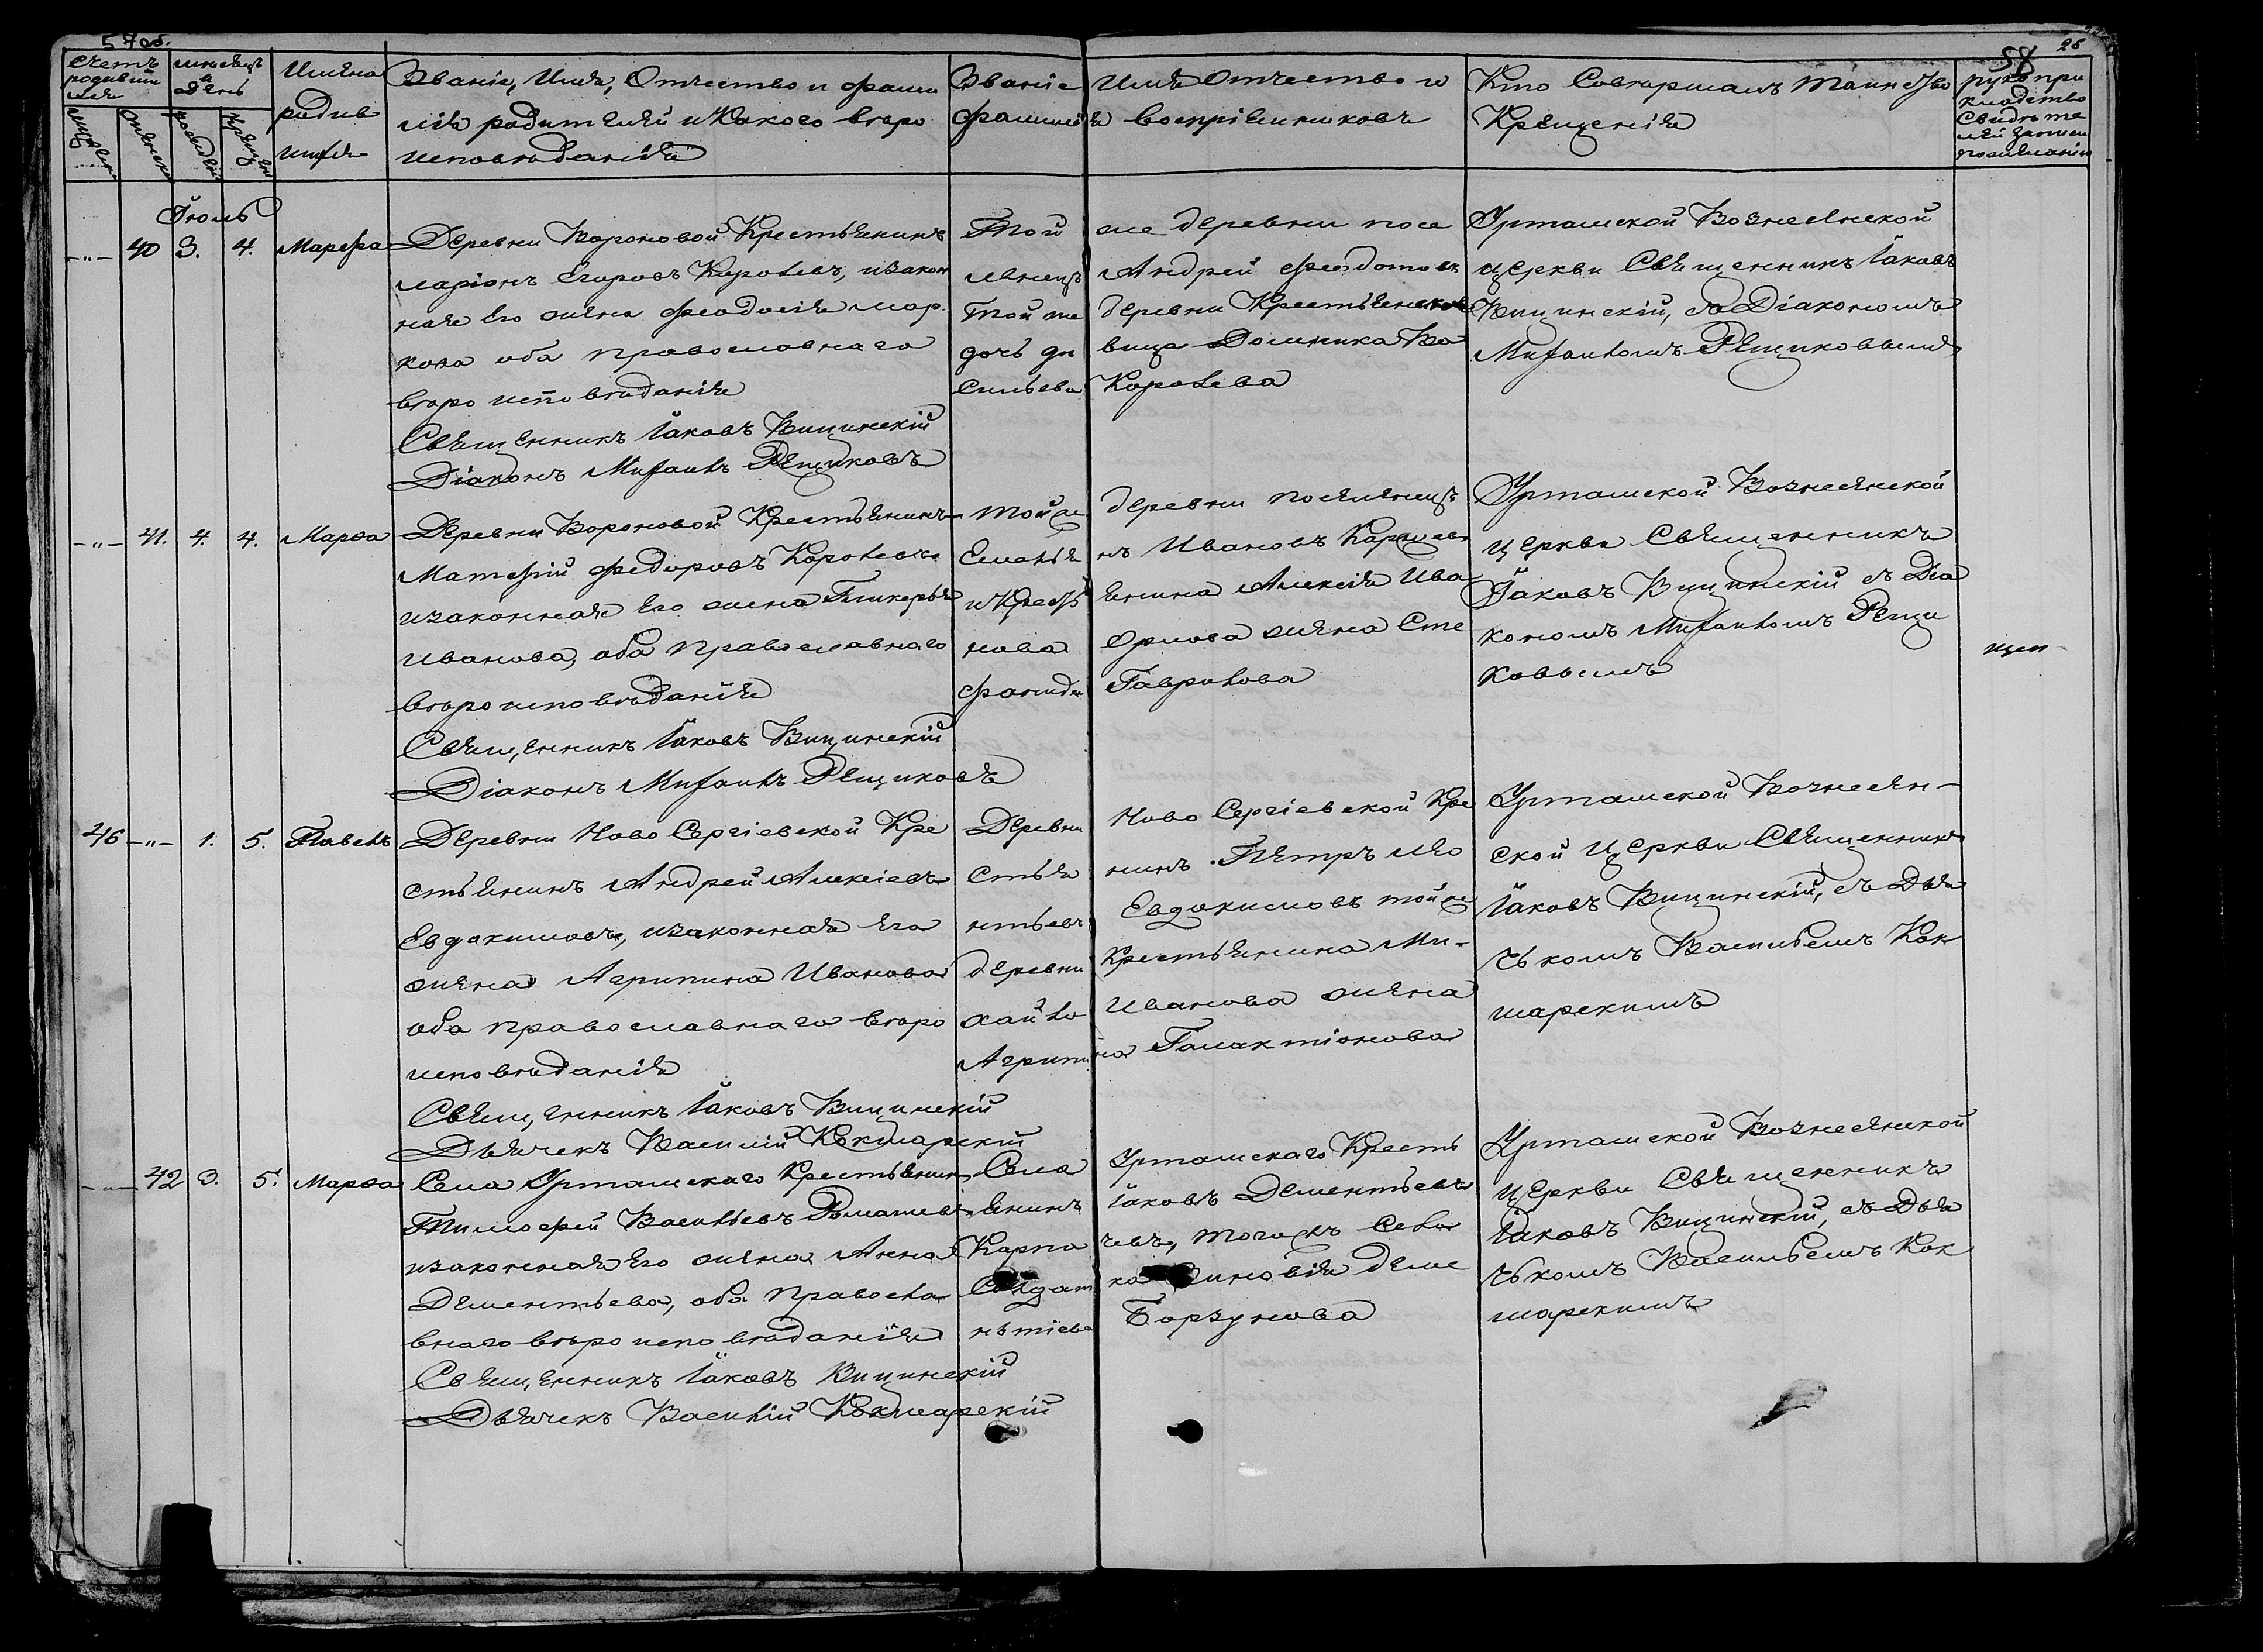 57об.
58
26
Счетъ родившихся
мѣсяцъ и день
Имяна родившихся
Званіе, Имя, Отчество и фами
лія родителей и Какого вѣро
исповѣданія
Званіе Имя Отчество и
фамилія воспріемниковъ
Кто Совершалъ Таинство
Крещенія
рукопри
кладство
свидѣте
лей записи
по желанію
Іюль
-"- 40 3. 4. Марефа
Деревни Вороновой Крестьянинъ
ларіонъ Егоровъ Королевъ, и закон
ная Его жена Феодосія мар.
кова оба православнаго
вѣро исповѣданія
Священникъ Іаковъ Вицинскій
Діаконъ Мифаилъ Рещиковъ
Той же деревни посе
ленецъ Андрей Федотовъ
Той же деревни Крестьянская
дочь девица Домника Ва
сильева Королева
Урташской Вознесянской
церкви Священникъ Іаковъ
Вицинскій, съ Діакономъ
Мифаиломъ Рещиковымъ
-"- 41. 4. 4. Марѳа
Деревни Вороновой Крестьянинъ
Матефій Федоровъ Королевъ
и законная Его жена Гликерья
Иванова, оба Православнаго
вѣро исповѣданія
Священникъ Іаковъ Вицинскій
Діаконъ Мифаилъ Рещиковъ
Той же деревни поселенецъ
Емельянъ Ивановъ
и Крестьянина Алексія Ива
нова Орлова жена Сте
фанида Гаврилова
Урташской Вознесянской
церкви Священникъ
Іаковъ Вицинскій съ Діа
кономъ Мифаиломъ Рещи
ковымъ
46 -"- 1. 5. Павелъ
Деревни Ново Сергіевской Кре
стьянинъ Андрей Алексіевъ
Евдокимовъ, и законная Его
жена Агрипина Иванова
оба православнаго вѣро
исповѣданія
Священникъ Іаковъ Вицинскій
Дьячекъ Василій Кокшарскій
Деревни Ново Сергіевской Кре
стьянинъ Петръ Лео
нтьевъ Евдокимовъ той же
деревни Крестьянина Ми-
хайло Иванова жена
Агрипина Галактіонова
Урташской Вознесян-
ской церкви Священникъ
Іаковъ Вицинскій, съ Дья
чькомъ Васильемъ Кок
шарскимъ
-"- 42 3. 5. Марѳа
Села Урташскаго Крестьянинъ
Тимофей Васильевъ Ромашевъ
и законная Его жена Анна
Дементьева, оба Правосла
внаго вѣро исповѣданія
Священникъ Іаковъ Вицинскій
Дьячекъ Василій Кокшарскій
Села Урташскаго Кресть
янинъ Іаковъ Дементьевъ
Карпачевъ, тогожъ Села
Солдатка Зиновія Деме
ньтіева Борзунова
Урташской Вознесянской
церкви Священникъ
Іаковъ Вицинскій, съ Дья
чькомъ Васильемъ Кок
шарскимъ